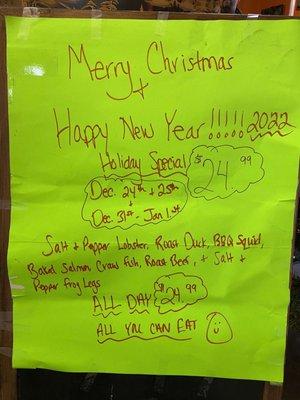 Merry Christmas
+
Happy New Year !!!!! 2022
Holiday Special $24.99
Dec. 24th + 25th
+
Dec. 31st - Jan 1st
Salt + Pepper Lobster, Roast Duck, BBQ Squid,
Baked Salmon, Craw fish, Roast Beef, + Salt +
Pepper Frog Legs
ALL DAY $24.99
ALL YOU CAN EAT